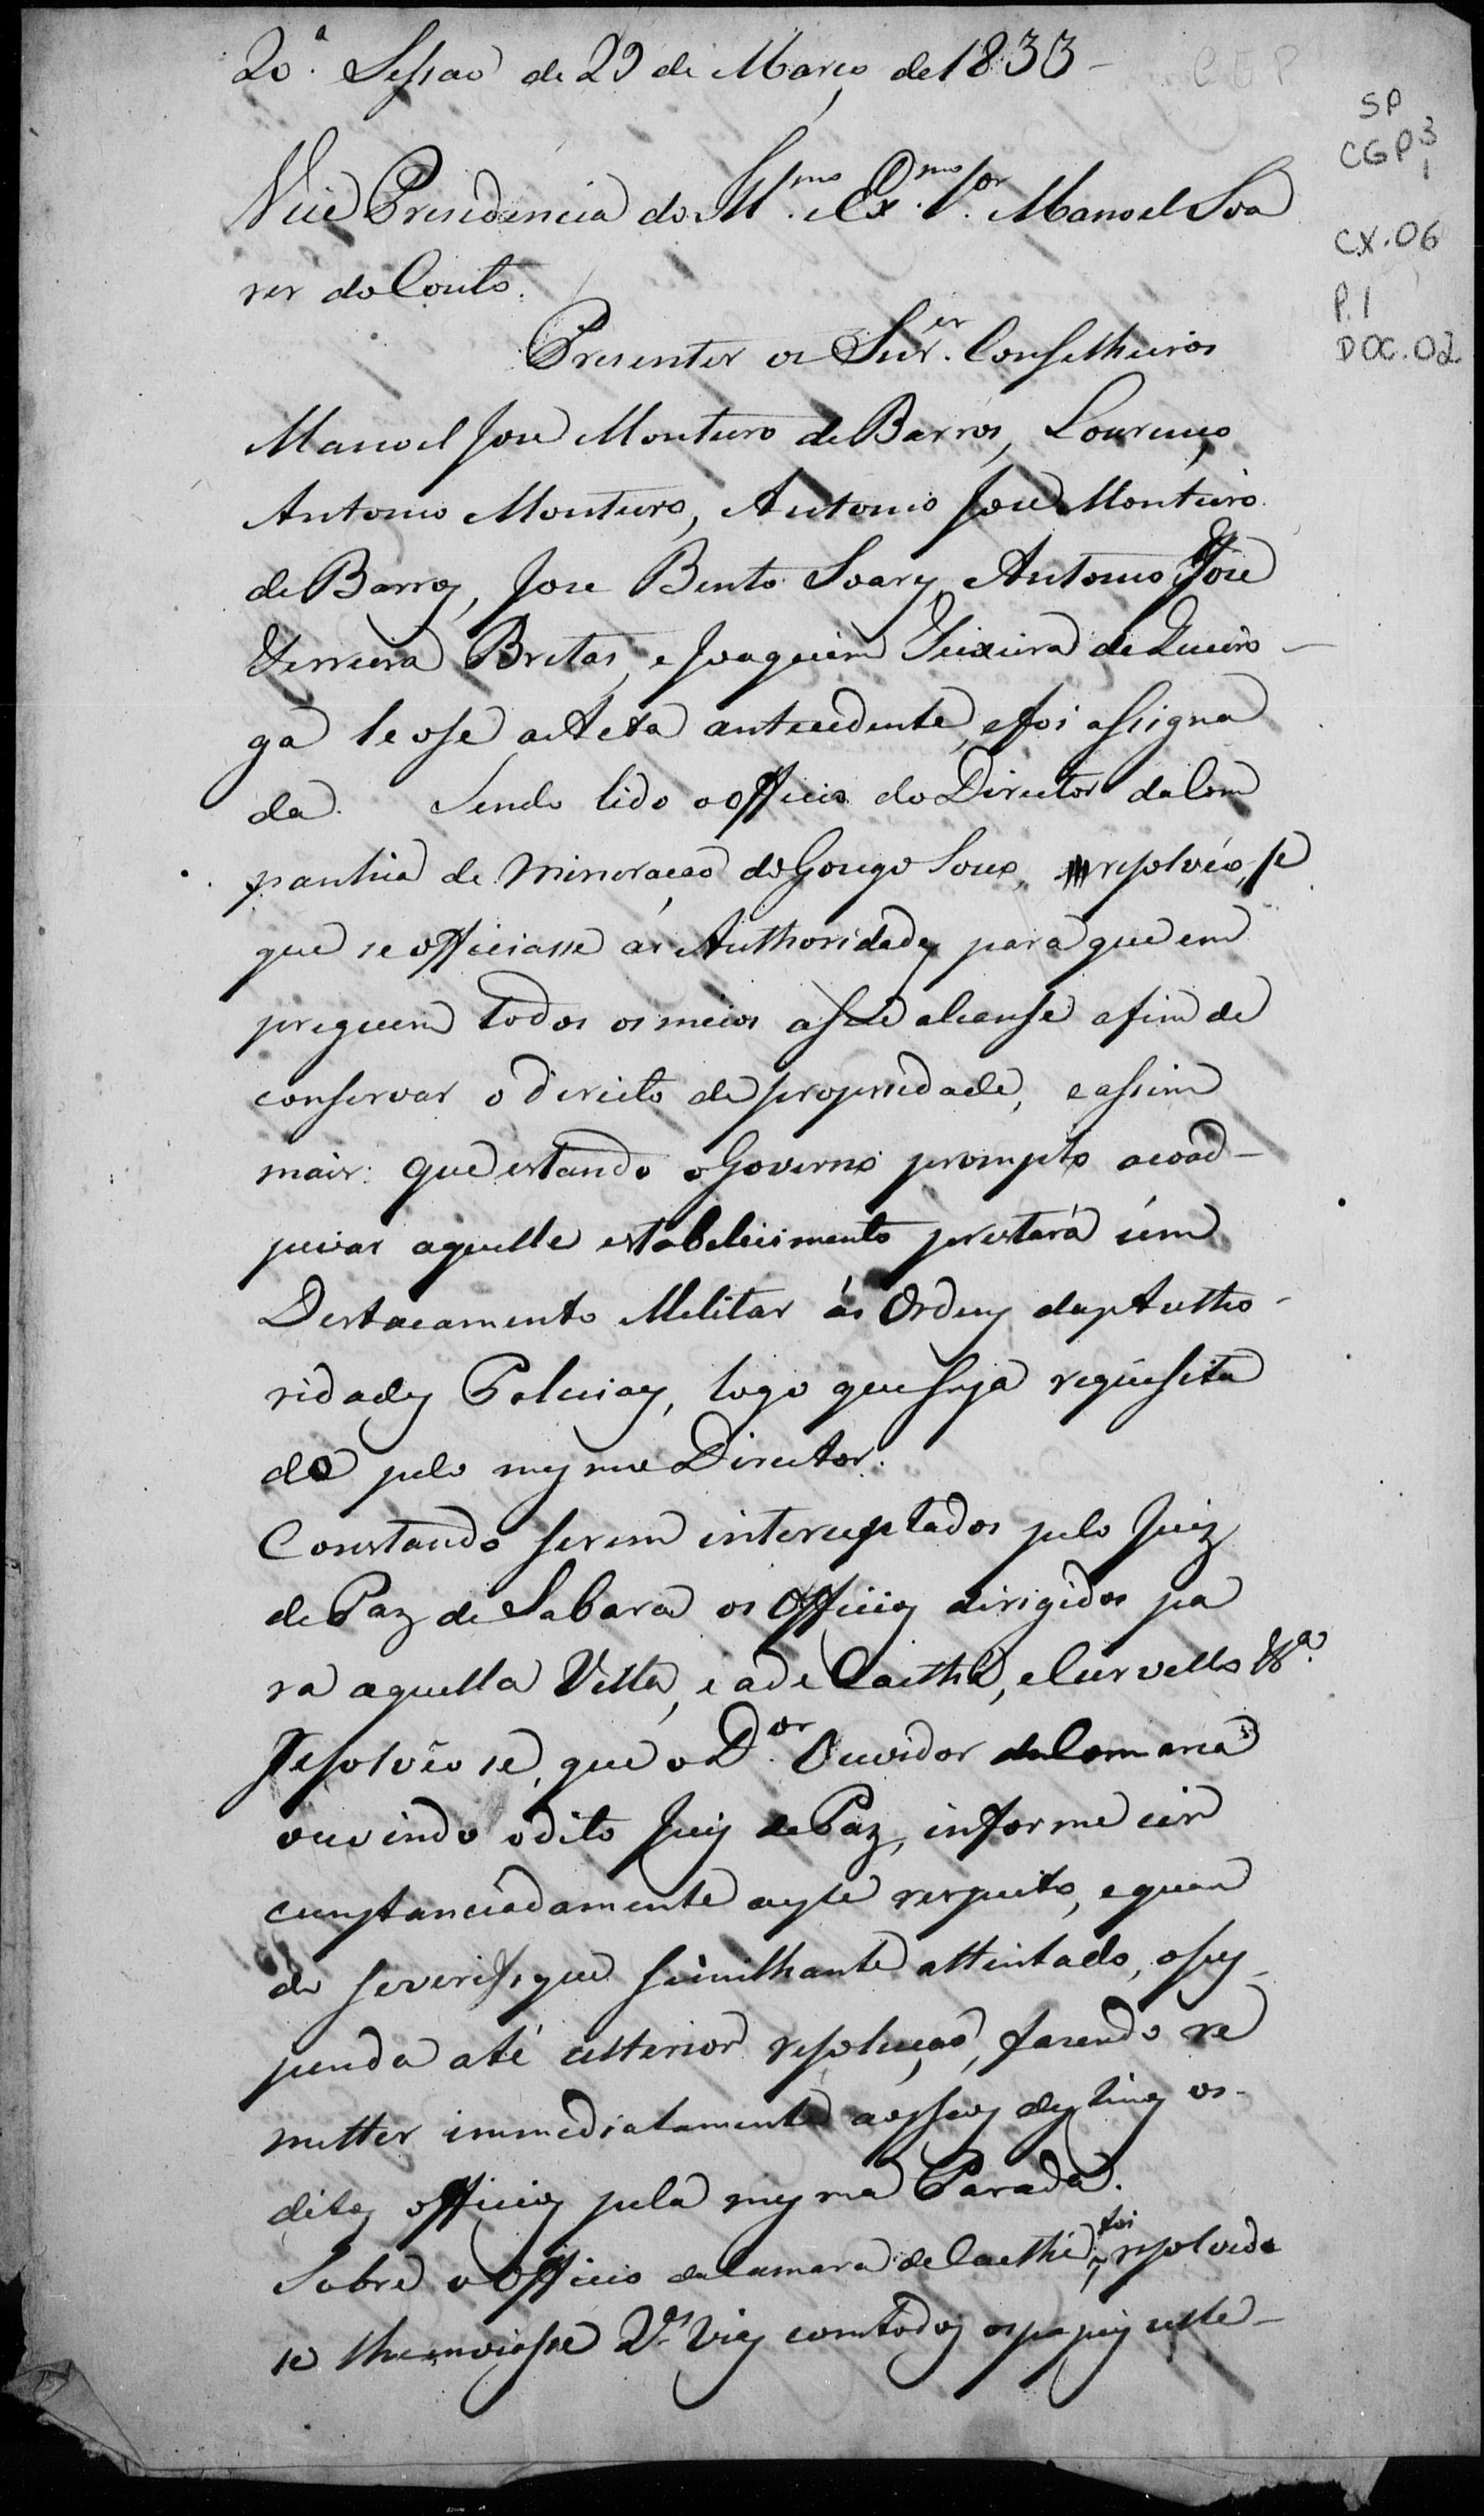 2.ª Sessaõ de 29 de Março de 1833
SP
CGP 3
1
CX.06
P.1
DOC.02
Vice Presidencia do Ill.mo e Ex.mo S.or Manoel Soa
res do Couto.
Presentes os Snr.es Conselheiros
Manoel Jose Monteiro de Barros, Lourenço
Antonio Monteiro, Antonio Jose Monteiro
de Barros, Jose Bento Soares, Antonio Jose
Ferreira Bretas, e Joaquim Teixeira de Queiro
ga leose a Acta antecedente, e foi assigna
da. Sendo lido o officio do Director da Com
panhia de Mineraçaõ do Gongo Soco, resolvéo, se
que se officiasse ás Authoridades para que em
preguem todos os meios a seu alcanse afim de
conservar o direito de propriedade, e assim
mais: que estando o Governo prompto a coad-
juvar aquelle estabelecimento prestará úm
Destacamento Militar ás Ordens das Autho-
ridades Policiaes, logo que seja reqúesita
do pelo mesmo Director.
Constando serem interceptados pelo Juiz
de Paz de Sabara os Officios dirigidos pa
ra aquella Villa, e a de Caethé, e Curvello &ª.
Resolvêo se, que o D.or Ouvidor da Comarca
ouvindo o dito Juiz de Paz, informe cir
cunstanciadamente a este respeito, e quan
do se verifique similhante attentado, o sus-
penda até ulterior resoluçaõ, fazendo re
metter immediatamente aos seos destinos os
ditos officios pela mesma Parada.
Sobre o Officio da Camara de Caethé, foi resolvido
se lhe enviasse 2.as Vias com todos os papeis elle-